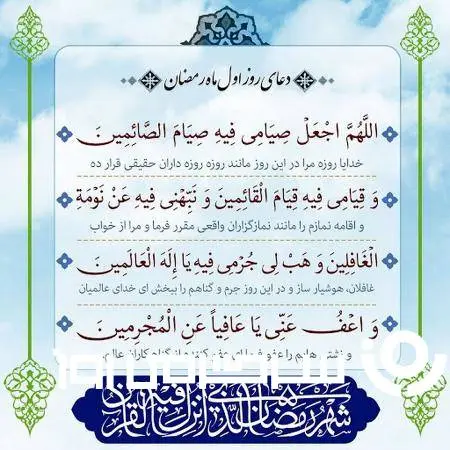 دعای روز اول ماه رمضان
اللَّهُمَّ اجْعَلْ صِيَامِى فِيهِ صِيَامَ الصَّائِمِينَ
خدایا روزه مرا در این روز مانند روزه روزه داران حقیقی قرار ده
وَ قِيَامِى فِيهِ قِيَامَ الْقَائِمِينَ وَ نَبِّهْنِى فِيهِ عَنْ نَوْمَةِ
و اقامه نمازم را مانند نمازگزاران واقعی مقرر فرما و مرا از خواب
الْغَافِلِينَ وَ هَبْ لِى جُرْمِى فِيهِ يَا إِلَهَ الْعَالَمِينَ
غافلان، هوشیار ساز و در این روز جرم و گناهم را ببخش ای خدای عالمیان
وَ اعْفُ عَنِّى يَا عَافِياً عَنِ الْمُجْرِمِينَ
و زشتی هایم را عفو فرما ای عفو کننده از گناهکاران عالم
شهر رمضان الذی انزل فیه القرآن